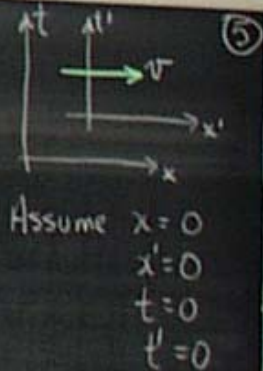 ⑤
t t'
v
x'
x
Assume x = 0
x' = 0
t = 0
t' = 0